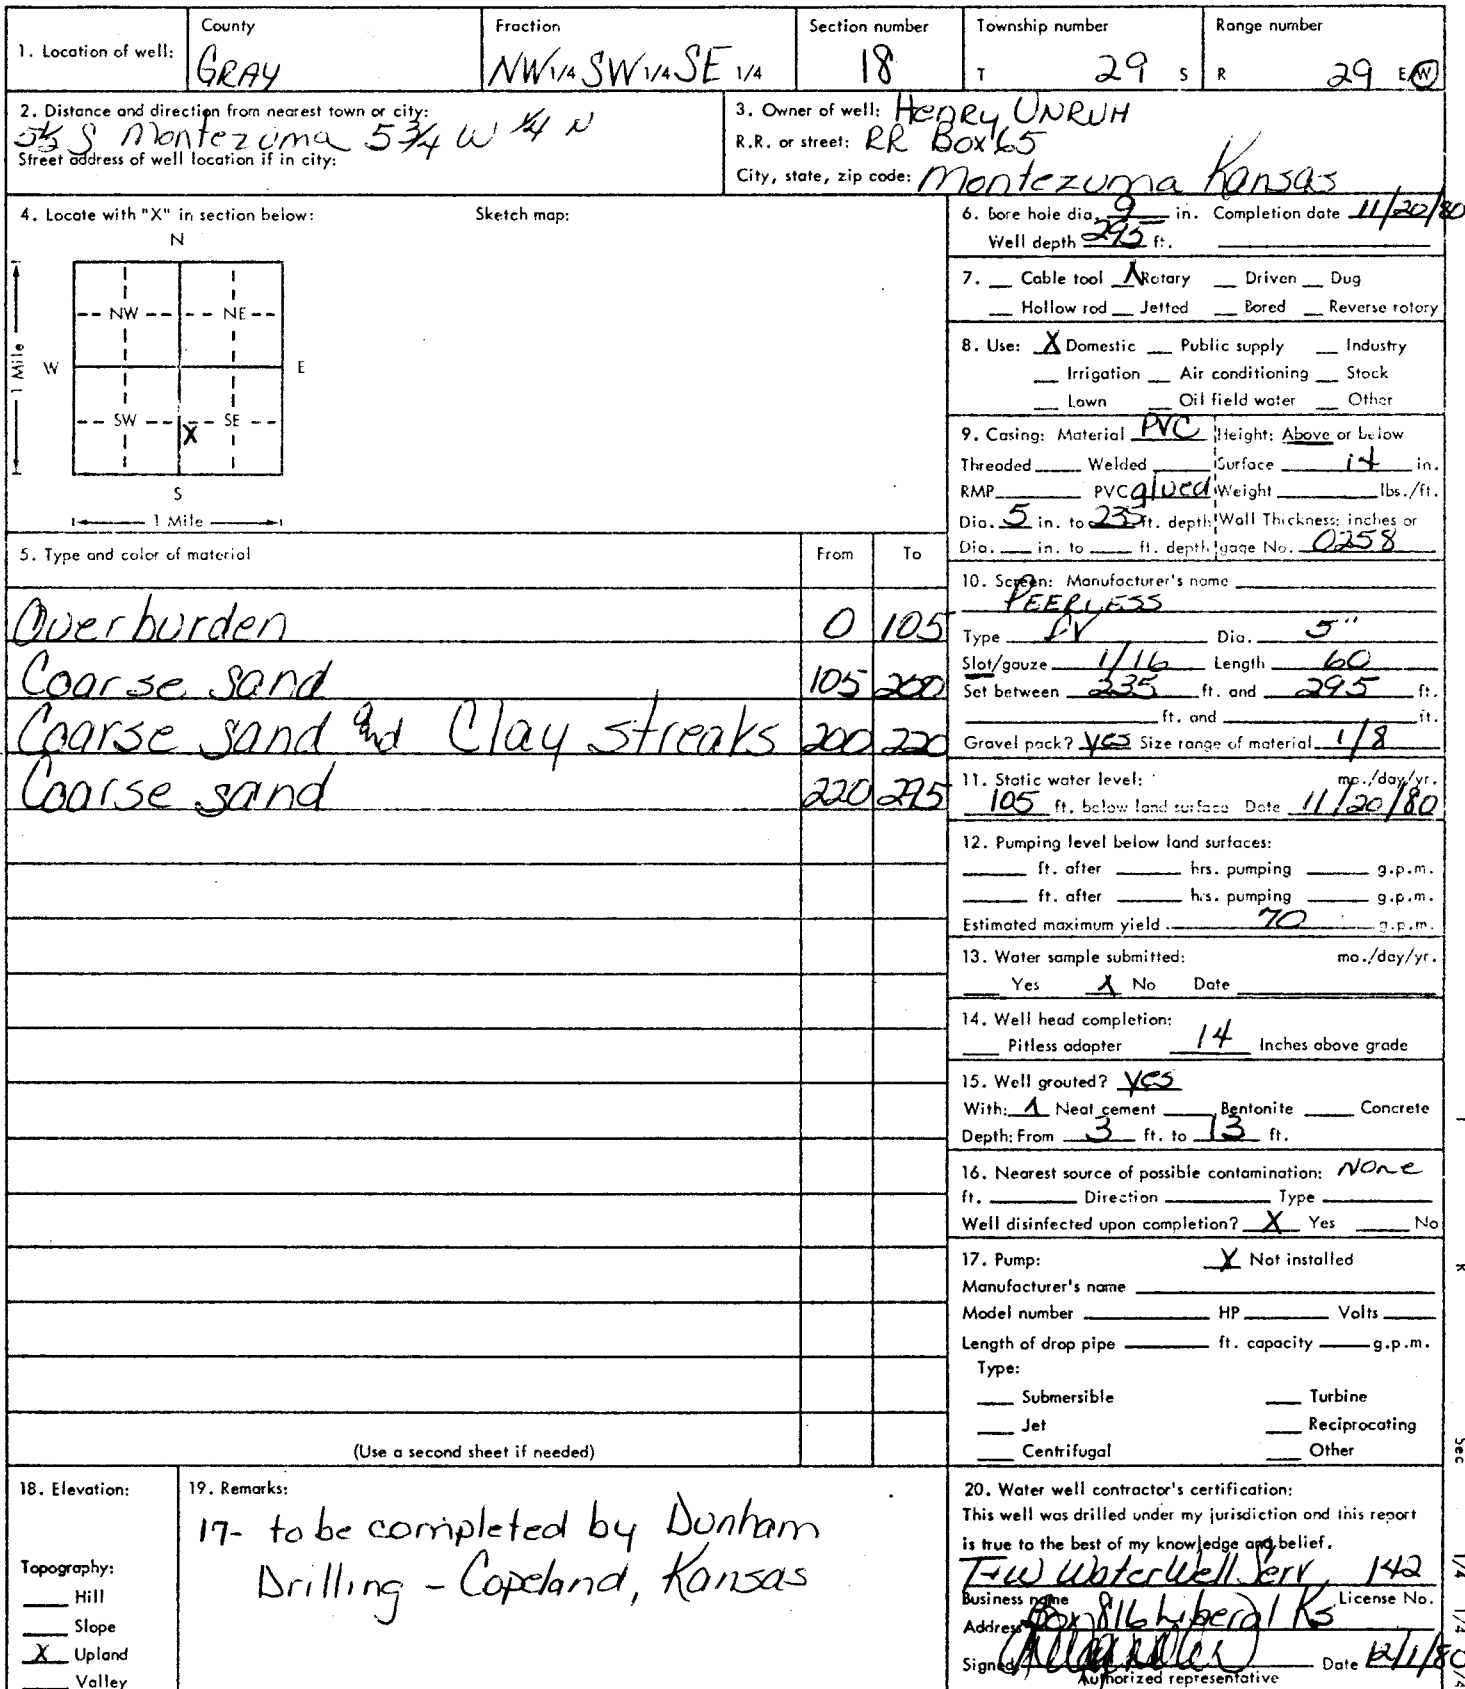 County Fraction Section number Township number Range number
1. Location of well: GRAY NW 1/4 SW 1/4 SE 1/4 18 T 29 S R 29 E W
2. Distance and direction from nearest town or city:
5½ S Montezuma 5 3/4 W 1/4 N
Street address of well location if in city:
3. Owner of well: Henry UNRUH
R.R. or street: RR Box 65
City, state, zip code: Montezuma Kansas
4. Locate with "X" in section below: Sketch map:
N
NW NE
W E
1 Mile
SW X SE
S
1 Mile
6. Bore hole dia. 9 in. Completion date 11/20/80
Well depth 295 ft.
7. Cable tool X Rotary Driven Dug
Hollow rod Jetted Bored Reverse rotary
8. Use: X Domestic Public supply Industry
Irrigation Air conditioning Stock
Lawn Oil field water Other
9. Casing: Material PVC Height: Above or below
Threaded Welded Surface 14 in.
RMP PVC glued Weight lbs./ft.
Dia. 5 in. to 235 ft. depth Wall Thickness: inches or
Dia. in. to ft. depth gage No. 0258
5. Type and color of material From To
Overburden 0 105
Coarse sand 105 200
Coarse sand and Clay streaks 200 220
Coarse sand 220 295
10. Screen: Manufacturer's name
PEERLESS
Type Dia. 5"
Slot/gauze 1/16 Length 60
Set between 235 ft. and 295 ft.
ft. and ft.
Gravel pack? yes Size range of material 1/8
11. Static water level: mo./day/yr.
105 ft. below land surface Date 11/20/80
12. Pumping level below land surfaces:
ft. after hrs. pumping g.p.m.
ft. after hrs. pumping g.p.m.
Estimated maximum yield 70 g.p.m.
13. Water sample submitted: mo./day/yr.
Yes X No Date
14. Well head completion:
Pitless adapter 14 Inches above grade
15. Well grouted? yes
With: X Neat cement Bentonite Concrete
Depth: From 3 ft. to 13 ft.
16. Nearest source of possible contamination: None
ft. Direction Type
Well disinfected upon completion? X Yes No
17. Pump: X Not installed
Manufacturer's name
Model number HP Volts
Length of drop pipe ft. capacity g.p.m.
Type:
Submersible Turbine
Jet Reciprocating
Centrifugal Other
(Use a second sheet if needed)
18. Elevation:
Topography:
Hill
Slope
X Upland
Valley
19. Remarks:
17- to be completed by Dunham
Drilling - Copeland, Kansas
20. Water well contractor's certification:
This well was drilled under my jurisdiction and this report
is true to the best of my knowledge and belief.
T-W Water Well Serv. 142
Business name License No.
Address Box 816 Liberal Ks
Signed Date 12/1/80
Authorized representative
T
R
Sec
1/4 1/4 1/4